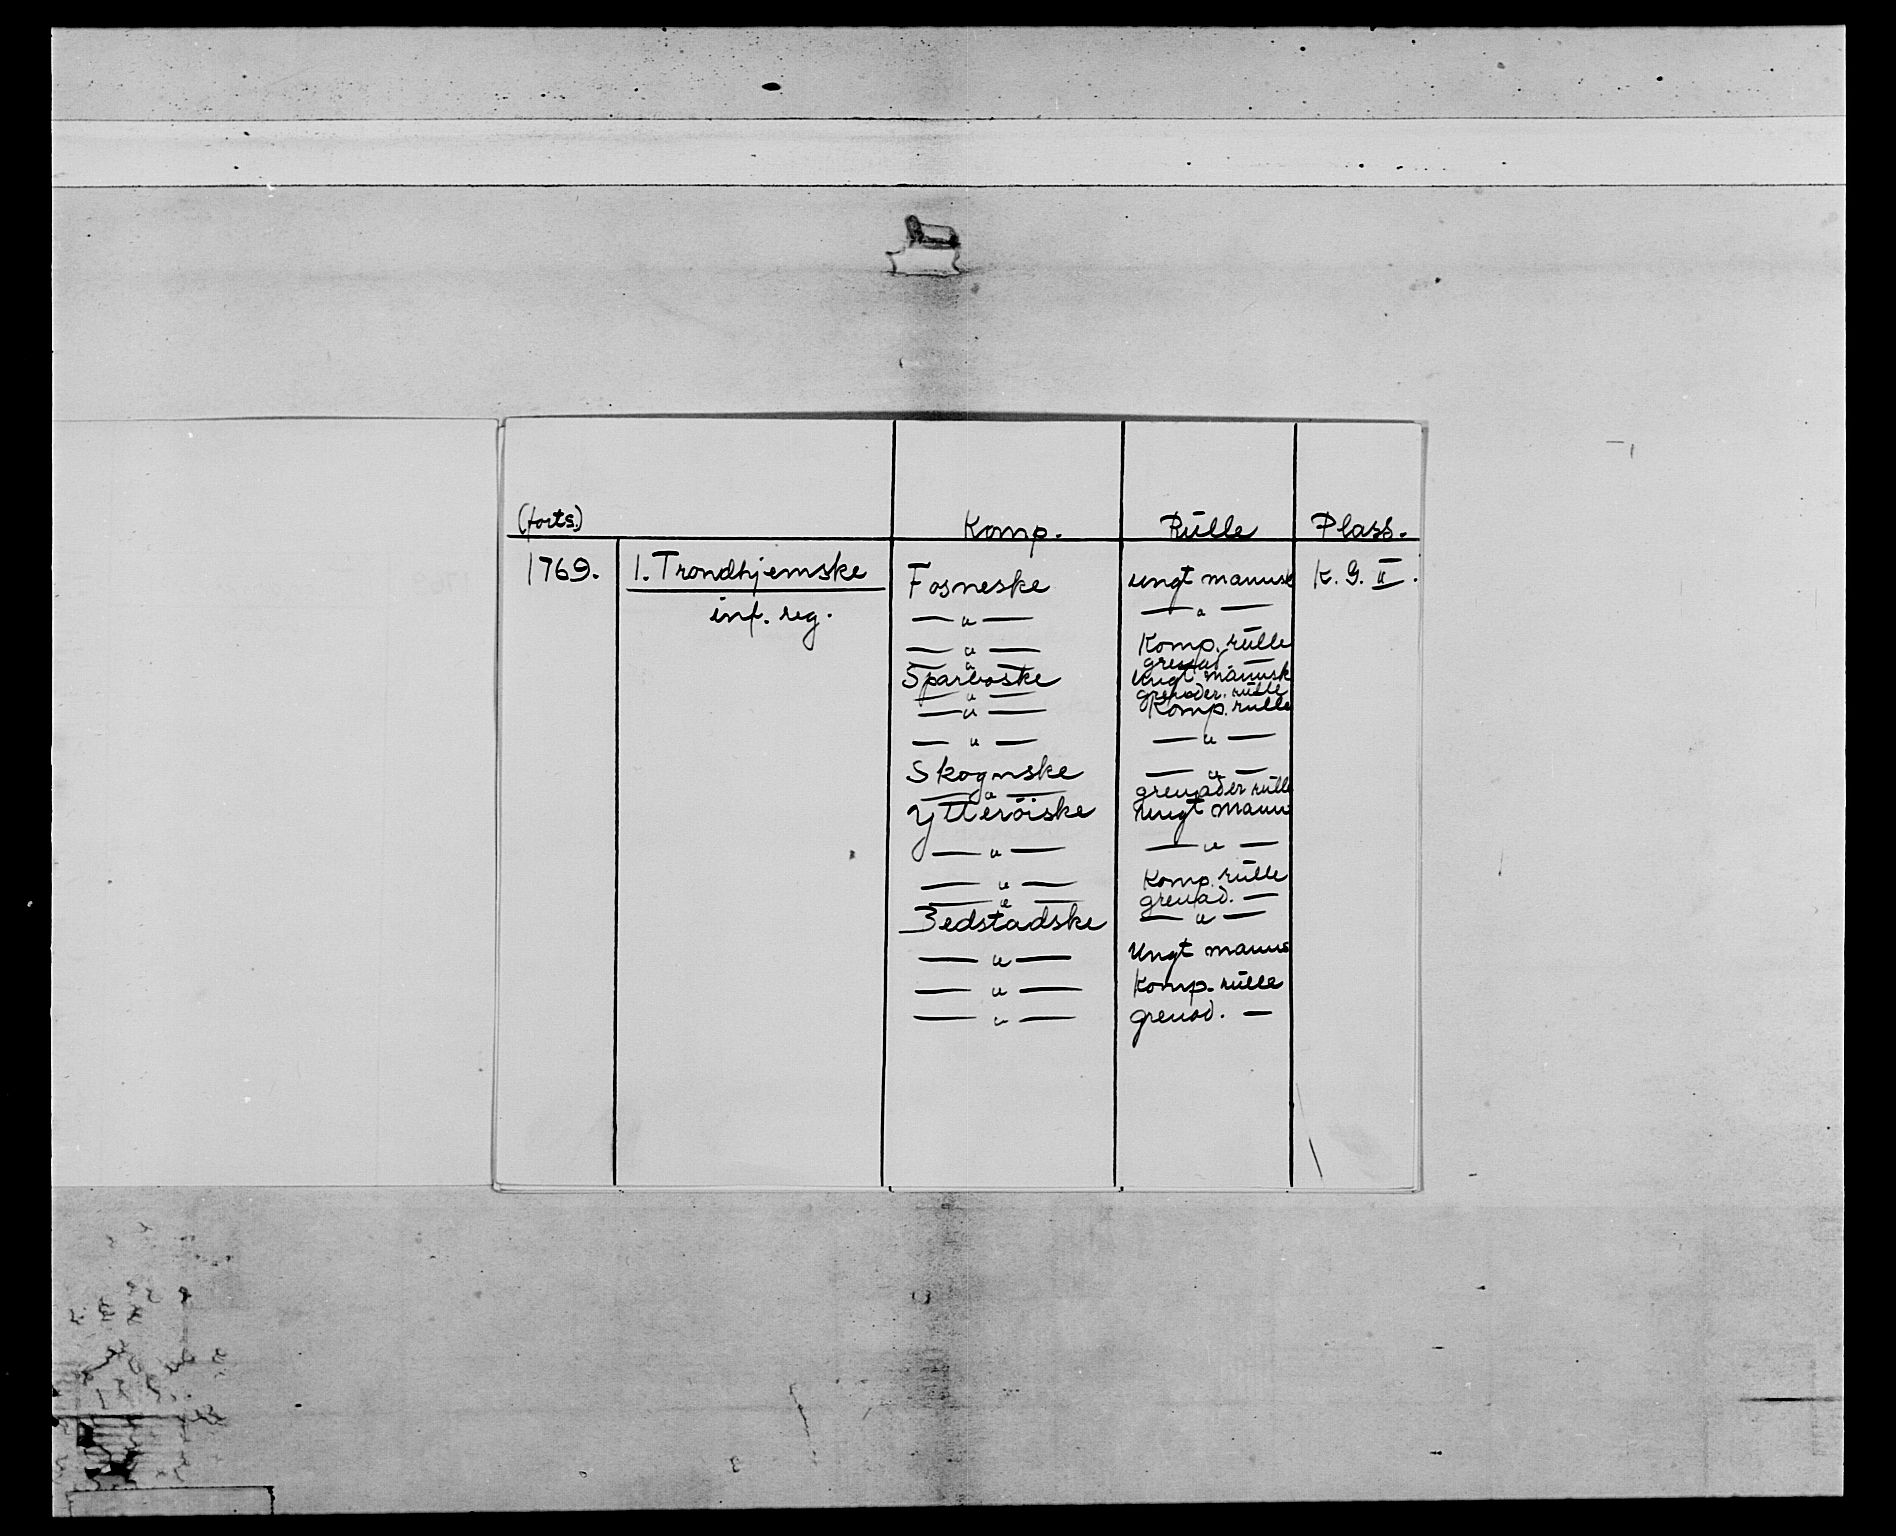 (forts.) Komp. Rulle Plass.
1769. 1. Trondhjemske Fosneske ungt mannsk K. G. II.
inf. reg. — " — — " —
— " — Komp. rulle
— " — grenad. —
Sparboske Ungt mannsk
— " — grenader. rulle
— " — Komp. rulle
— " — — " —
Skognske — " —
— " — grenader rulle
Ytterøiske Ungt mann
— " — — " —
— " — Komp. rulle
— " — grenad. —
Bedstadske — " —
— " — Ungt manns
— " — Komp. rulle
— " — grenad. —